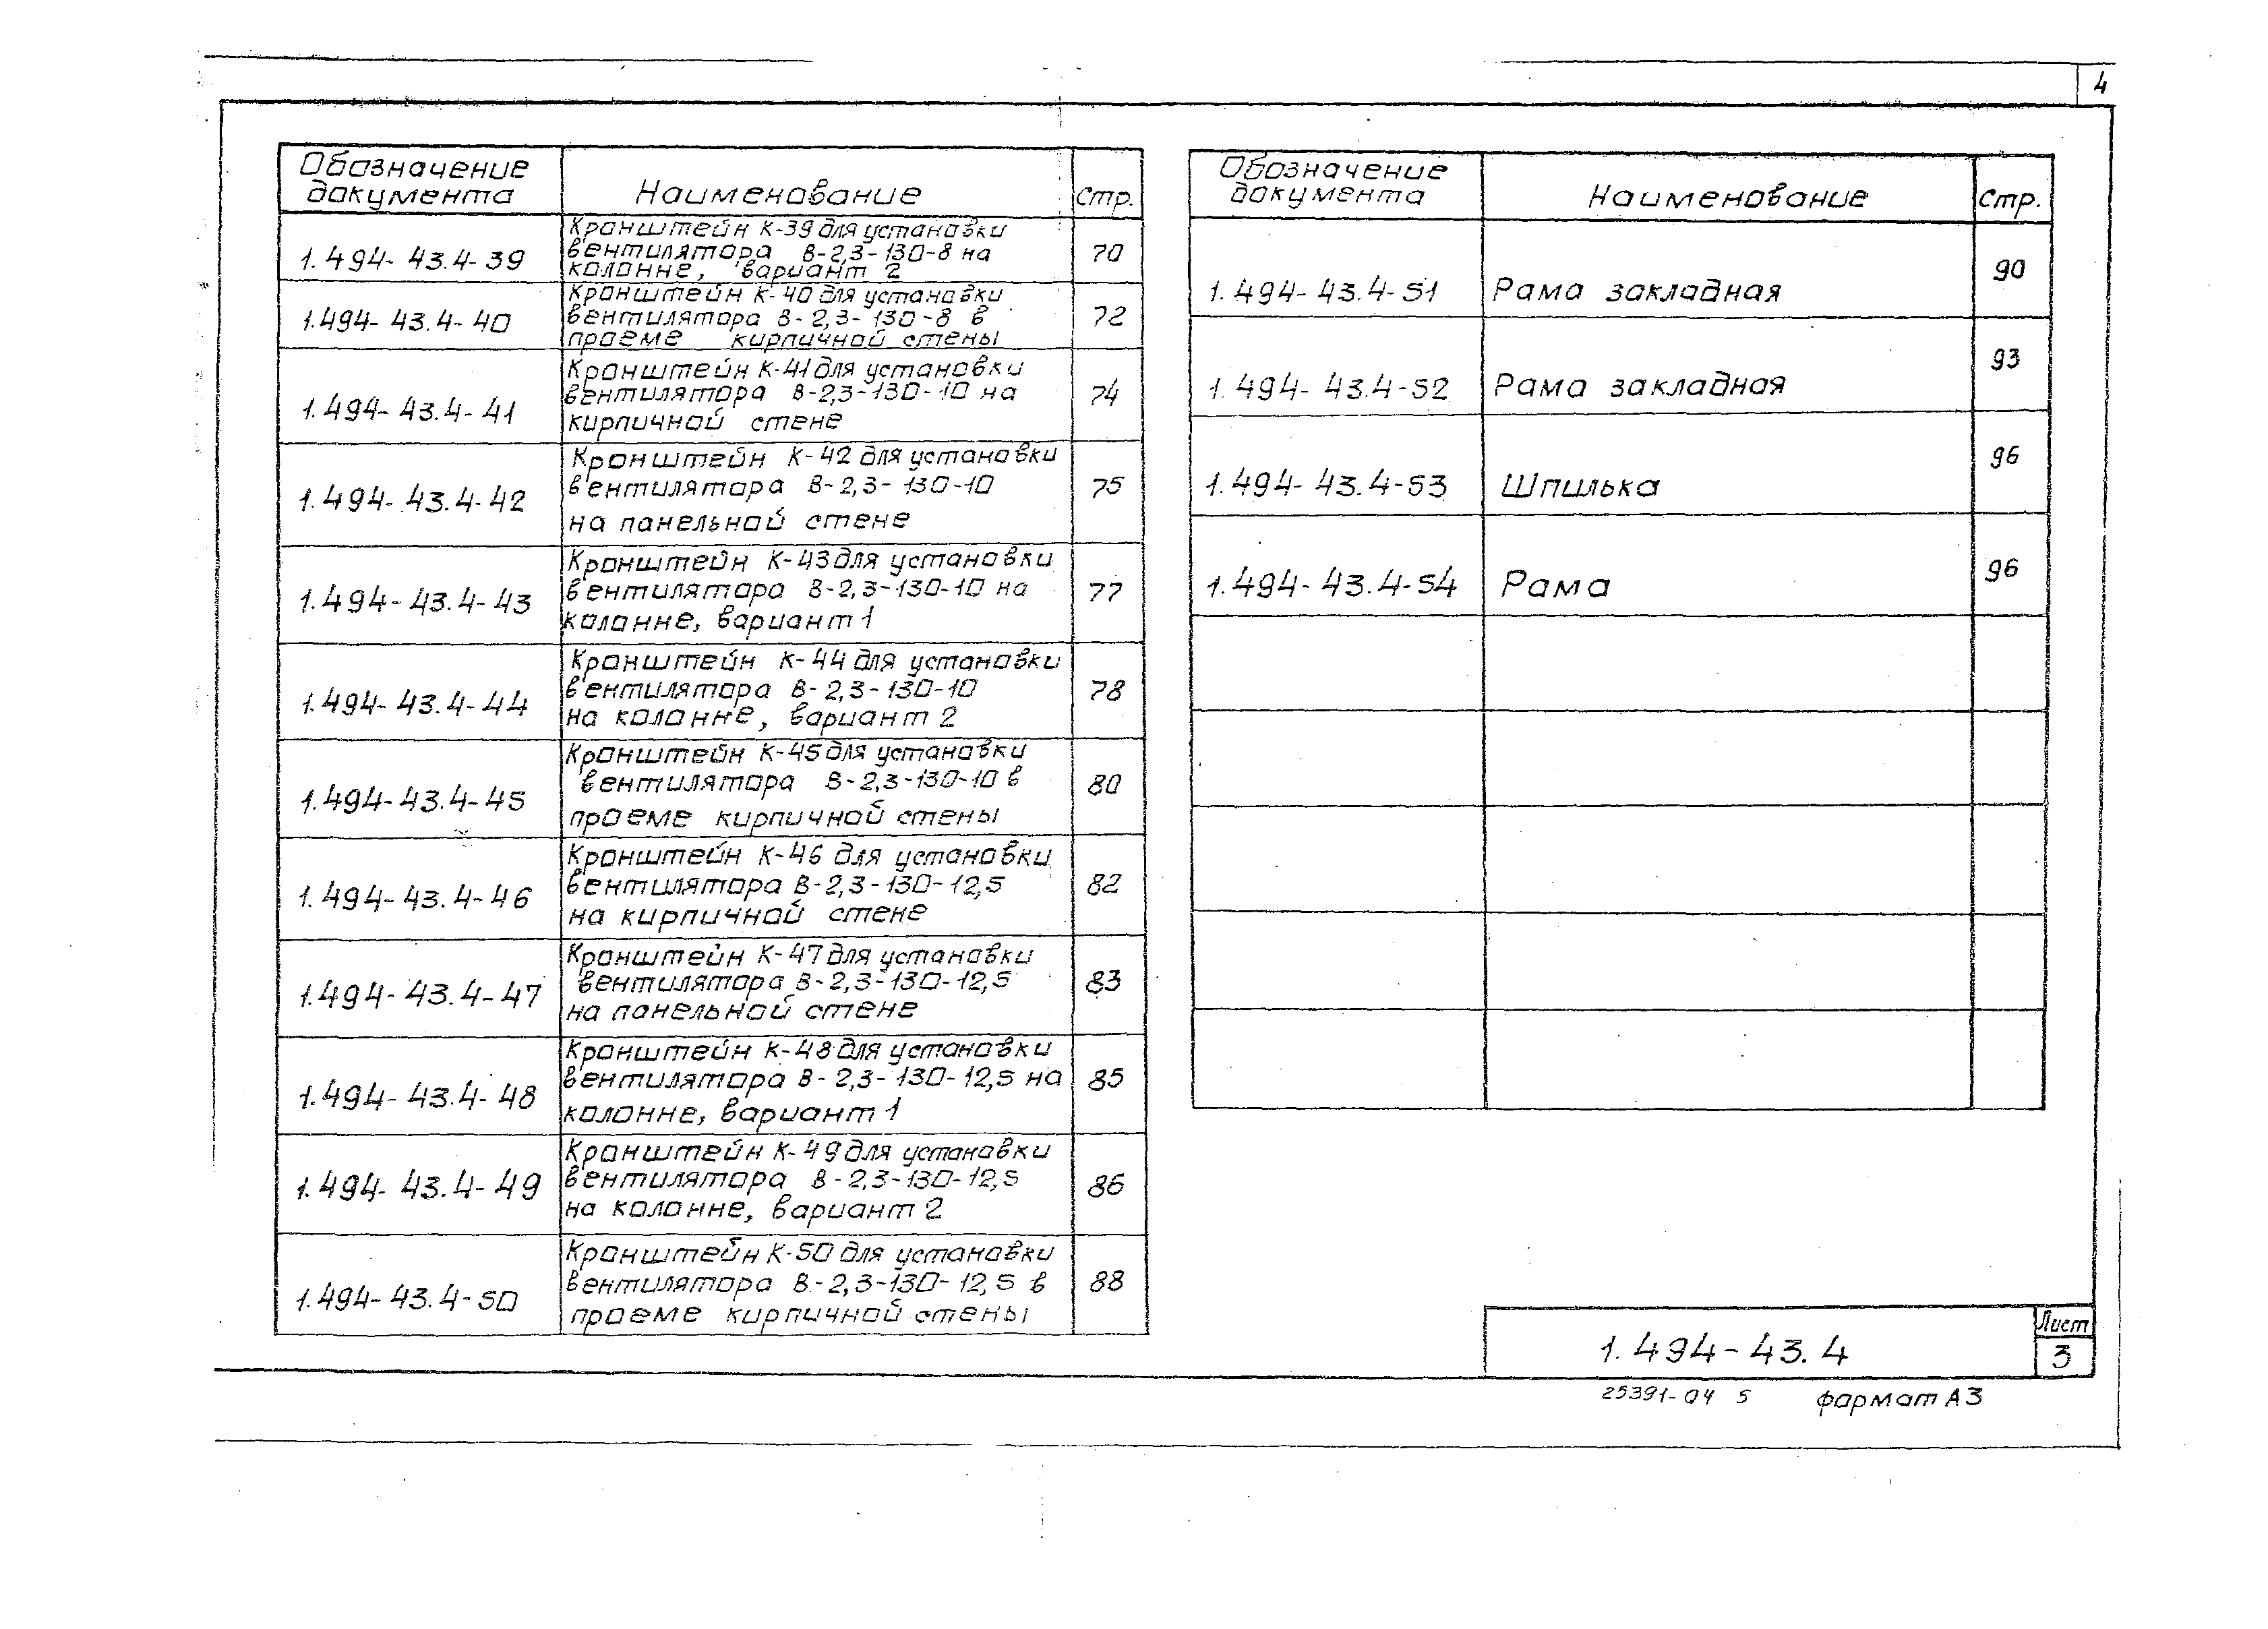 4
Обозначение
документа
Наименование
Стр.
1.494-43.4-39
Кронштейн К-39 для установки
вентилятора В-2,3-130-8 на
колонне, вариант 2
70
1.494-43.4-40
Кронштейн К-40 для установки
вентилятора В-2,3-130-8 в
проеме кирпичной стены
72
1.494-43.4-41
Кронштейн К-41 для установки
вентилятора В-2,3-130-10 на
кирпичной стене
74
1.494-43.4-42
Кронштейн К-42 для установки
вентилятора В-2,3-130-10
на панельной стене
75
1.494-43.4-43
Кронштейн К-43 для установки
вентилятора В-2,3-130-10 на
колонне, вариант 1
77
1.494-43.4-44
Кронштейн К-44 для установки
вентилятора В-2,3-130-10
на колонне, вариант 2
78
1.494-43.4-45
Кронштейн К-45 для установки
вентилятора В-2,3-130-10 в
проеме кирпичной стены
80
1.494-43.4-46
Кронштейн К-46 для установки
вентилятора В-2,3-130-12,5
на кирпичной стене
82
1.494-43.4-47
Кронштейн К-47 для установки
вентилятора В-2,3-130-12,5
на панельной стене
83
1.494-43.4-48
Кронштейн К-48 для установки
вентилятора В-2,3-130-12,5 на
колонне, вариант 1
85
1.494-43.4-49
Кронштейн К-49 для установки
вентилятора В-2,3-130-12,5
на колонне, вариант 2
86
1.494-43.4-50
Кронштейн К-50 для установки
вентилятора В-2,3-130-12,5 в
проеме кирпичной стены
88
Обозначение
документа
Наименование
Стр.
1.494-43.4-51
Рама закладная
90
1.494-43.4-52
Рама закладная
93
1.494-43.4-53
Шпилька
96
1.494-43.4-54
Рама
96
1.494-43.4
Лист
3
25391-04 5
формат А3